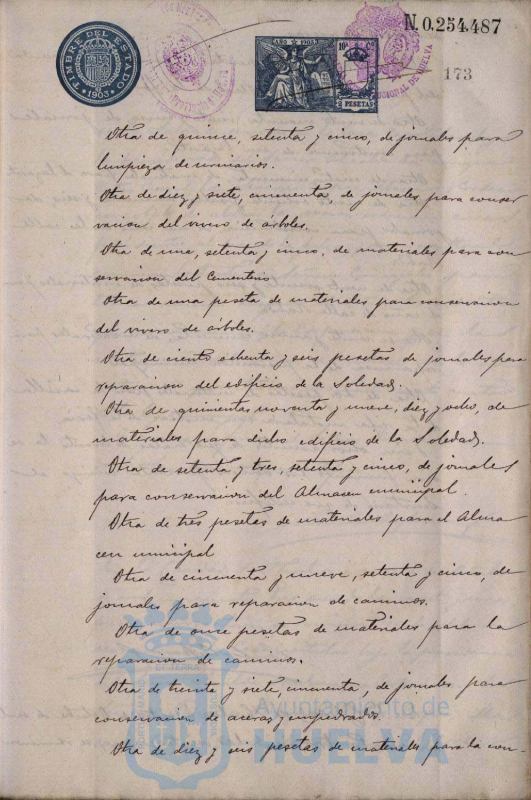 N.0.254.487
TIMBRE DEL ESTADO
1903
AÑO 1903
10ª C.
2 PESETAS
173
Otra de quince, setenta y cinco, de jornales para
limpieza de urinarios.
Otra de diez y siete, cincuenta, de jornales para conser
vacion del vivero de árboles.
Otra de una, setenta y cinco, de materiales para con
servacion del Cementerio
Otra de una peseta de materiales para conservacion
del vivero de árboles.
Otra de ciento ochenta y seis pesetas de jornales para
reparacion del edificio de la Soledad.
Otra de quinientas noventa y nueve, diez y ocho, de
materiales para dicho edificio de la Soledad.
Otra de setenta y tres, setenta y cinco, de jornales
para conservacion del Almacen municipal.
Otra de tres pesetas de materiales para el Alma
cen municipal
Otra de cincuenta y nueve, setenta y cinco, de
jornales para reparacion de caminos.
Otra de once pesetas de materiales para la
reparacion de caminos.
Otra de treinta y siete, cincuenta, de jornales para
conservacion de aceras y empedrados.
Otra de diez y seis pesetas de materiales para la con-
Ayuntamiento de
HUELVA